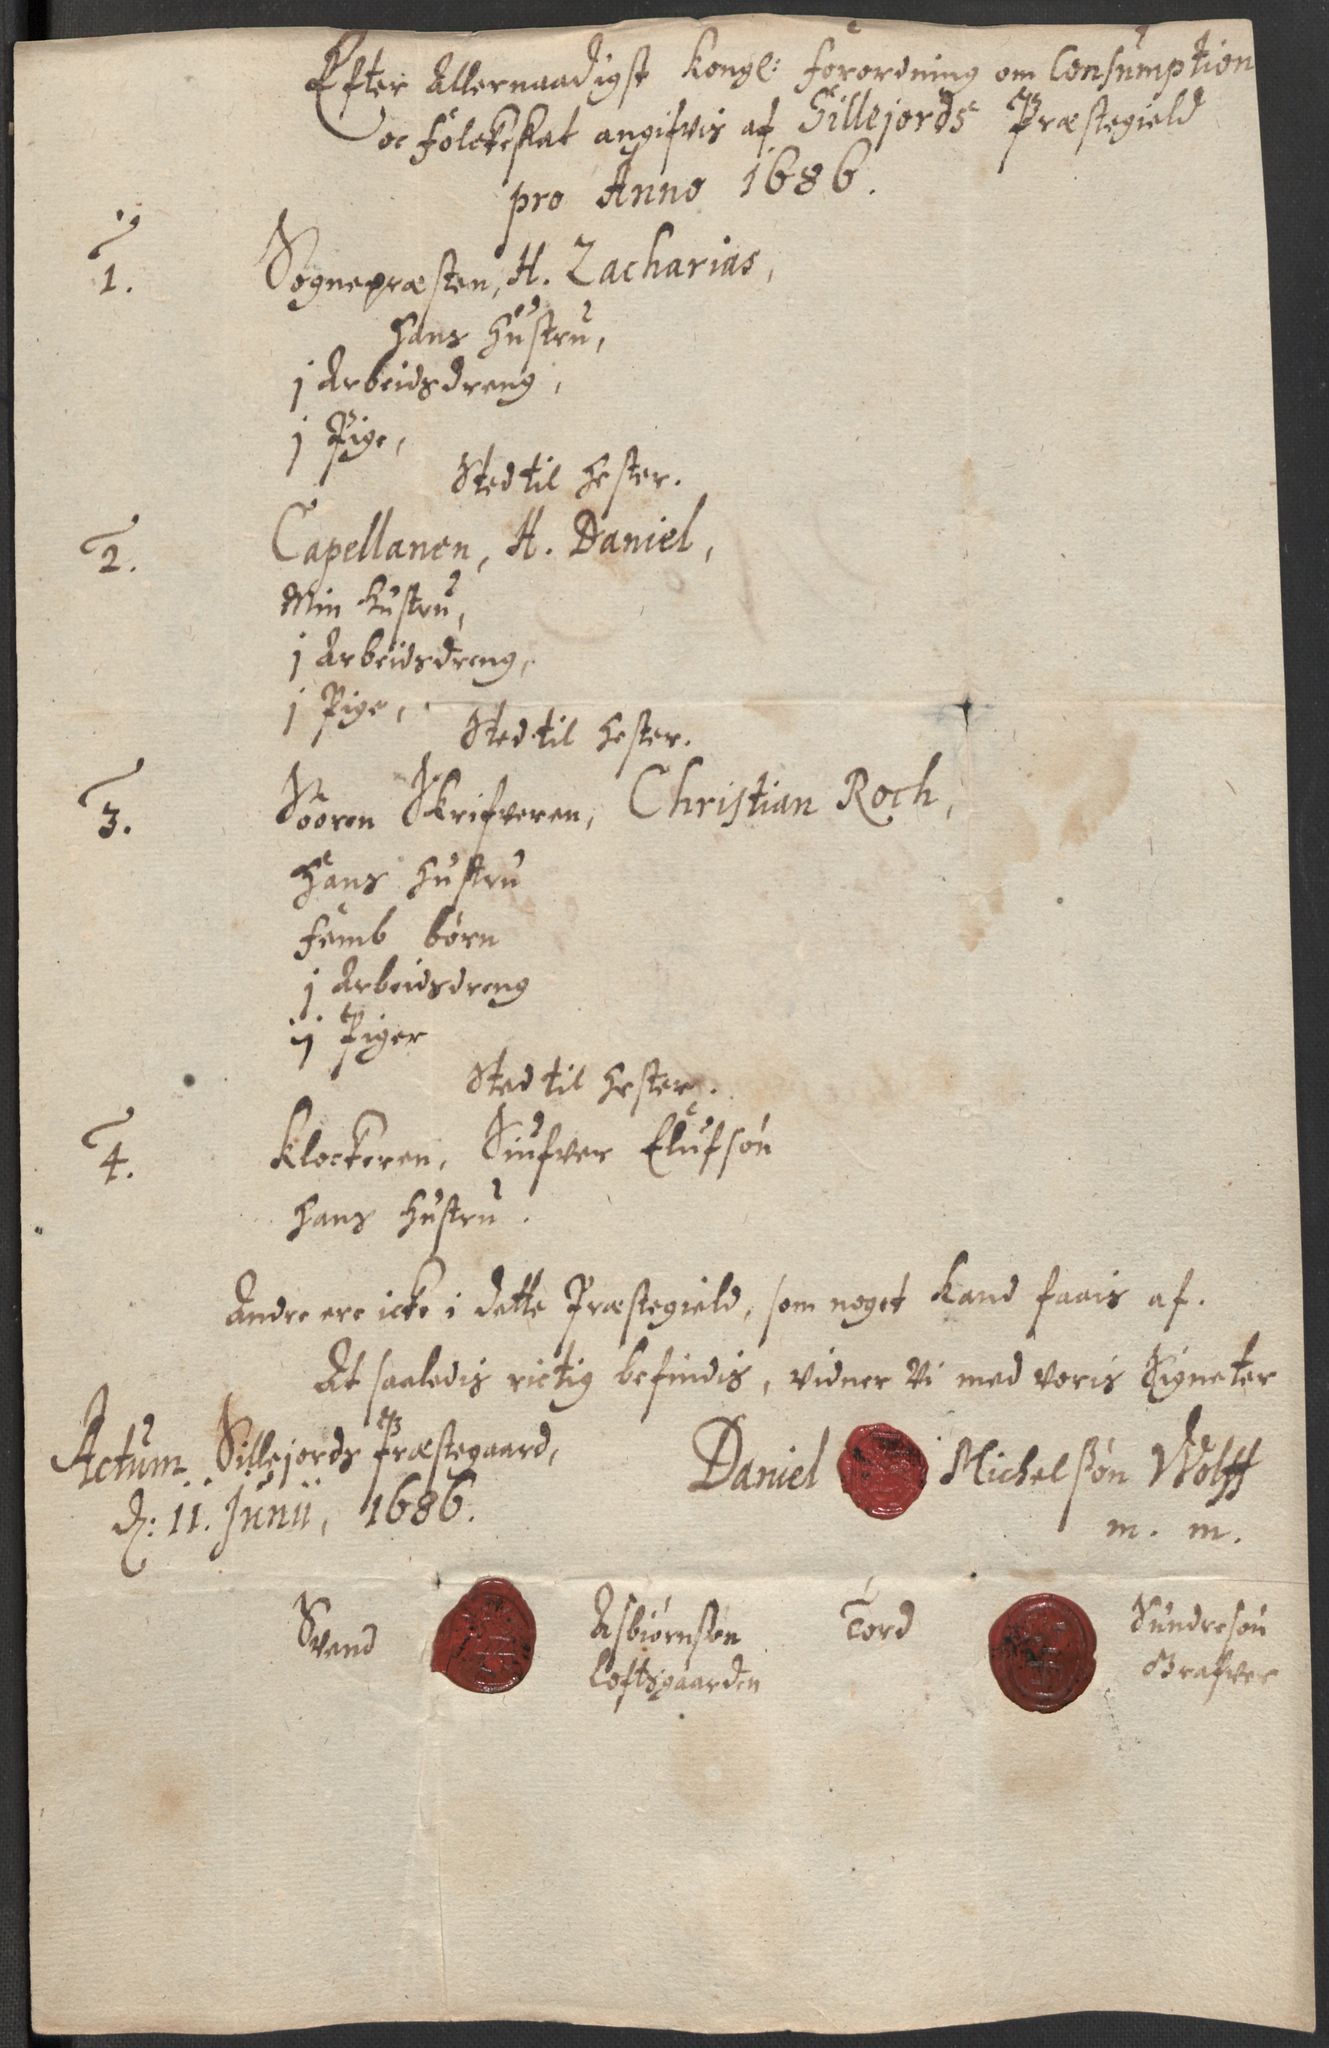 Efter Allernaadigst Kongl: forordning om Consumption
oc folckeskat angifvis af Sillejords Præstegield
pro Anno 1686.
1. Sognepræsten, H. Zacharias,
Hans Hustru,
j Arbeidsdreng,
j Pige,
Sted til Hester.
2. Capellanen, H. Daniel,
Min Hustru,
j Arbeidsdreng,
j Pige,
Sted til Hester.
3. Sooren Skrifveren, Christian Roch,
Hans Hustru
femb børn
j Arbeidsdreng
ij Piger
Sted til Hester.
4. Klockeren, Siufver Elufsøn
Hans Hustru.
Andre ere icke i dette Præstegield, som noget kand faais af.
At saaledis rictig befindis, vidner Vi med voris Signeter
Actum Sillejords Præstegaard,
d: 11. Junii, 1686.
Daniel Michelsøn Wolff
m. m.
Svend Asbiørnsen
Loftsgaarden
Tord Sundresøn
Grafver